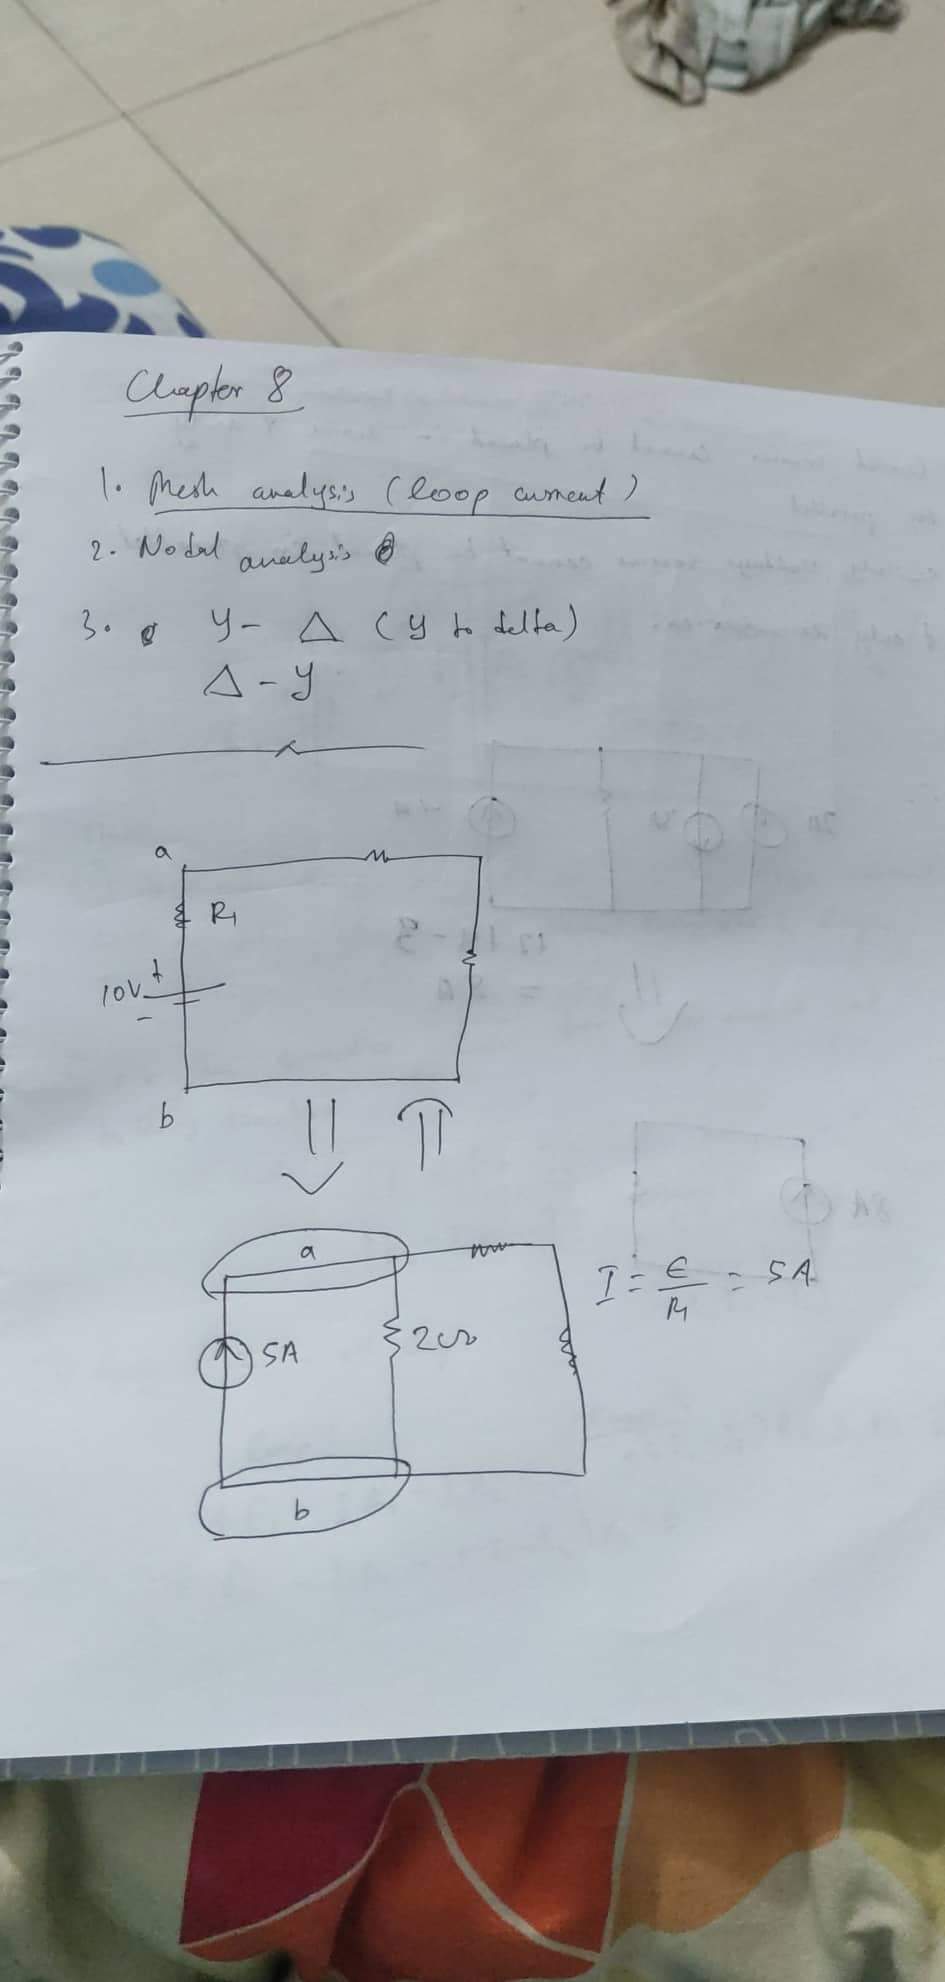 Chapter 8
1. Mesh analysis (loop current)
2. Nodal analysis
3. Y - Δ (Y to delta)
Δ - Y
a
R1
10V
+
-
b
a
5A
2Ω
I = E/R1 = 5A
b